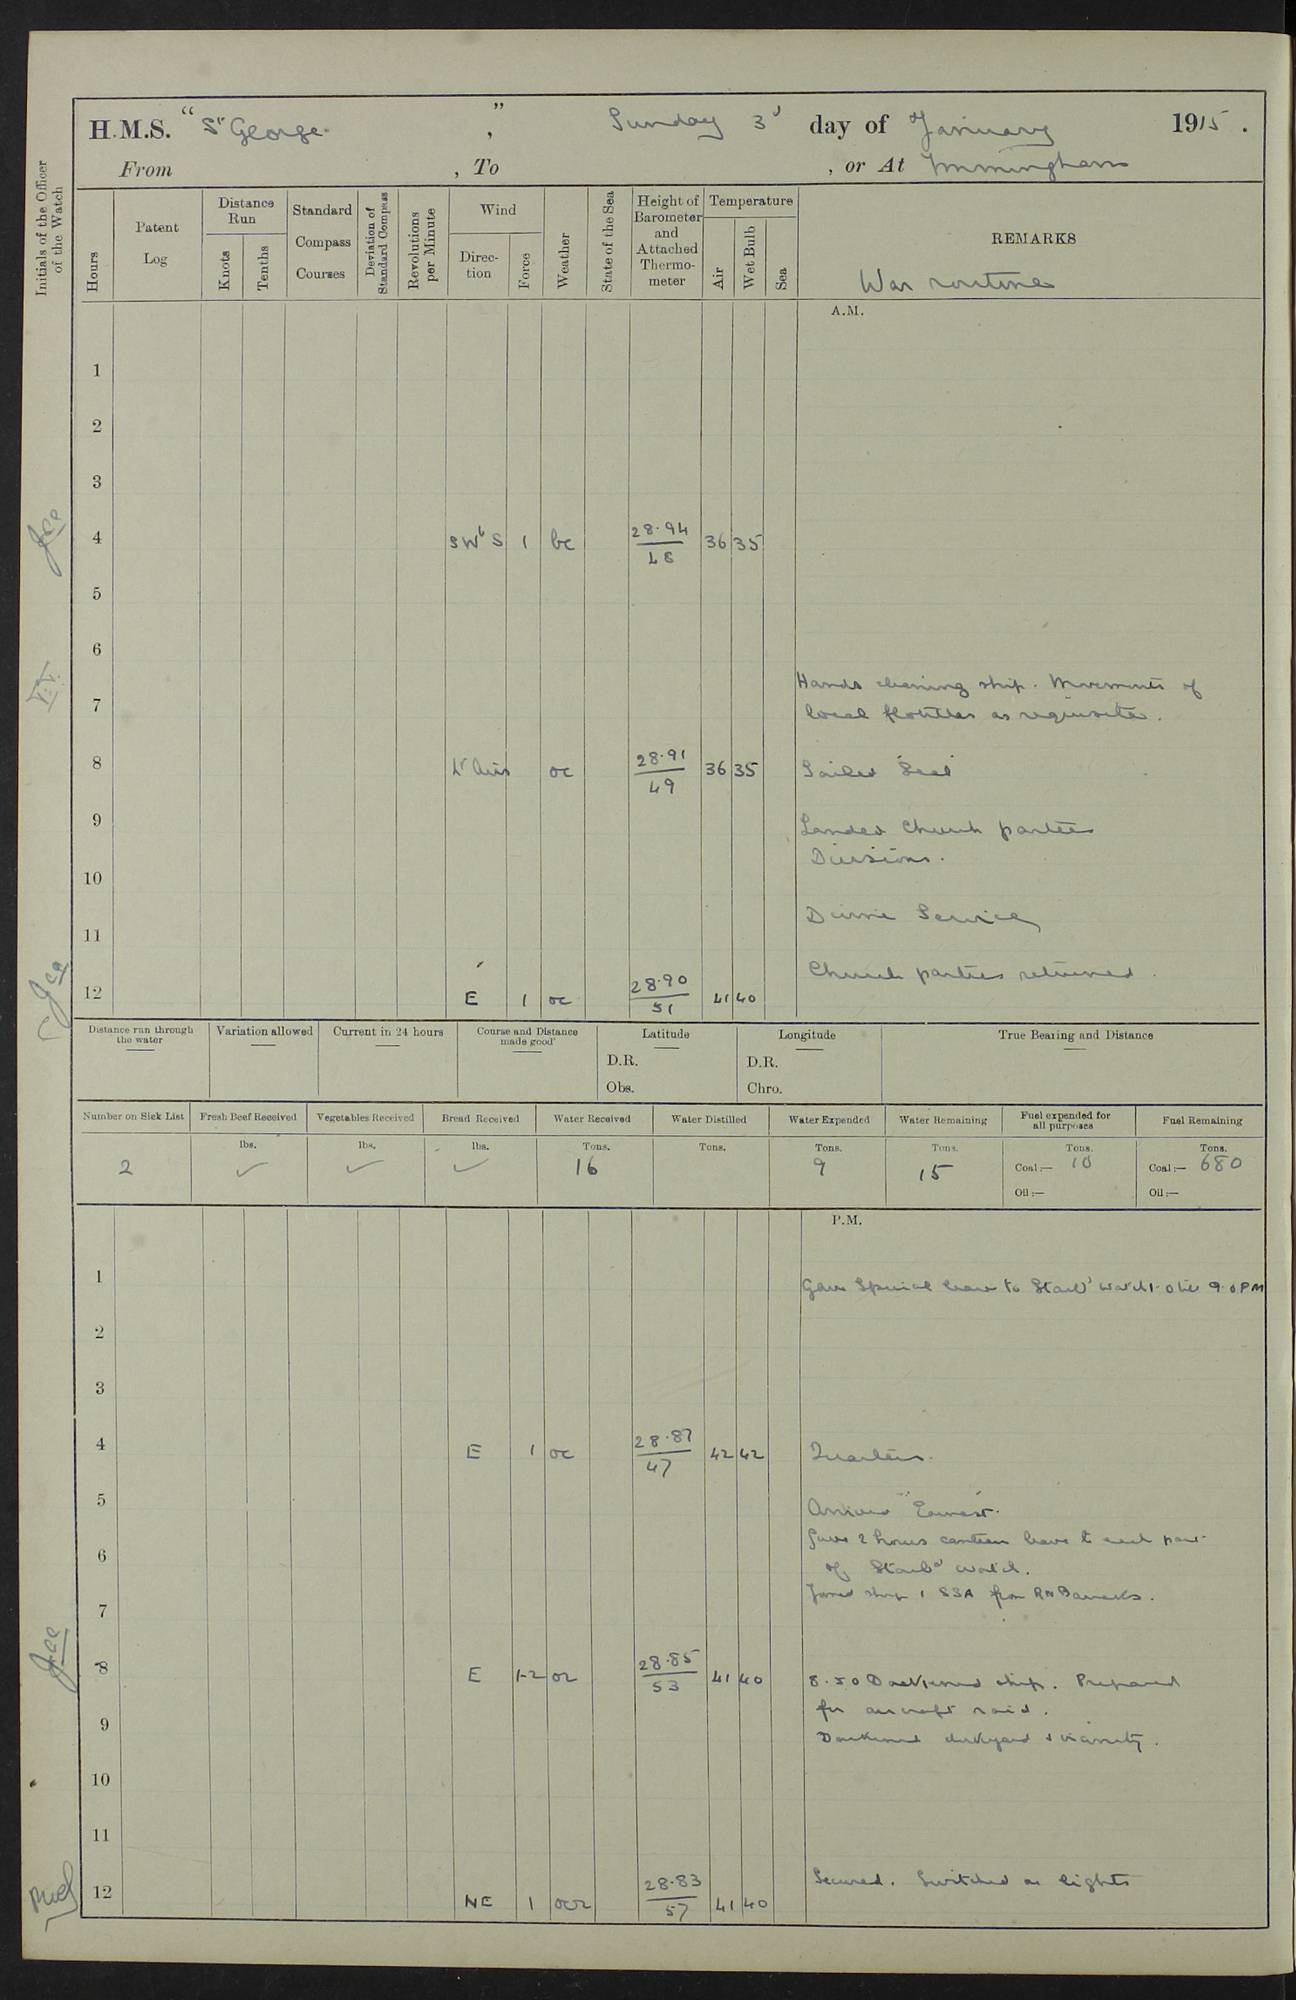 H.M.S. "St George" , Sunday 3d day of January 1915.
From , To , or At Immingham
Initials of the Officer of the Watch
Hours
Patent Log
Distance Run
Knots
Tenths
Standard Compass Courses
Deviation of Standard Compass
Revolutions per Minute
Wind
Direction
Force
Weather
State of the Sea
Height of Barometer and Attached Thermometer
Temperature
Air
Wet Bulb
Sea
REMARKS
War routine
A.M.
1
2
3
4 SWbS 1 bc 28.94/48 36 35
5
6
Hands cleaning ship. Movements of
7 local flotillas as requisite.
8 Lt Airs oc 28.91/49 36 35 Sailed "Seal"
9 Landed Church parties
Divisions.
10
Divine Service
11
Church parties returned.
12 E 1 oc 28.90/51 41 40
Distance run through the water
Variation allowed
Current in 24 hours
Course and Distance made good
Latitude
D.R.
Obs.
Longitude
D.R.
Chro.
True Bearing and Distance
Number on Sick List Fresh Beef Received Vegetables Received Bread Received Water Received Water Distilled Water Expended Water Remaining Fuel expended for all purposes Fuel Remaining
lbs. lbs. lbs. Tons. Tons. Tons. Tons. Tons. Tons.
2 ✓ ✓ ✓ 16 9 15 Coal:— 10 Coal:— 680
Oil:— Oil:—
P.M.
1 Gave Special leave to Starbd watch 1.0 till 9.0 PM
2
3
4 E 1 oc 28.87/47 42 42 Quarters.
5 Arrived "Earnest".
Gave 2 hours canteen leave to each part
6 of Starbd watch.
Joined ship 1 SSA from RN Barracks.
7
8 E 1-2 or 28.85/53 41 40 8.50 Darkened ship. Prepared
for aircraft raid.
9 Darkened dockyard & vicinity.
10
11
Secured. Switched on lights
12 NE 1 ocr 28.83/57 41 40